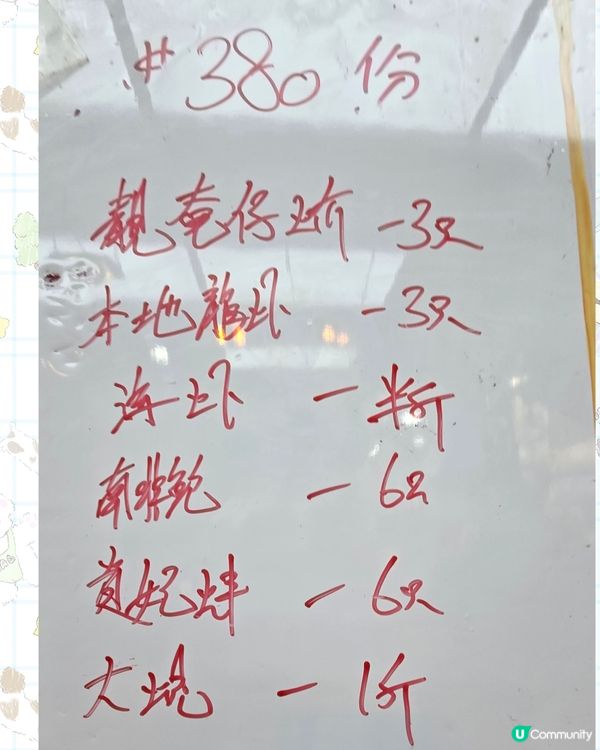 #380份
靚奄仔蚧 -3只
本地龍虾 -3只
海虾 - 半斤
南非鮑 - 6只
貴妃蚌 - 6只
大蜆 - 1斤
U Community